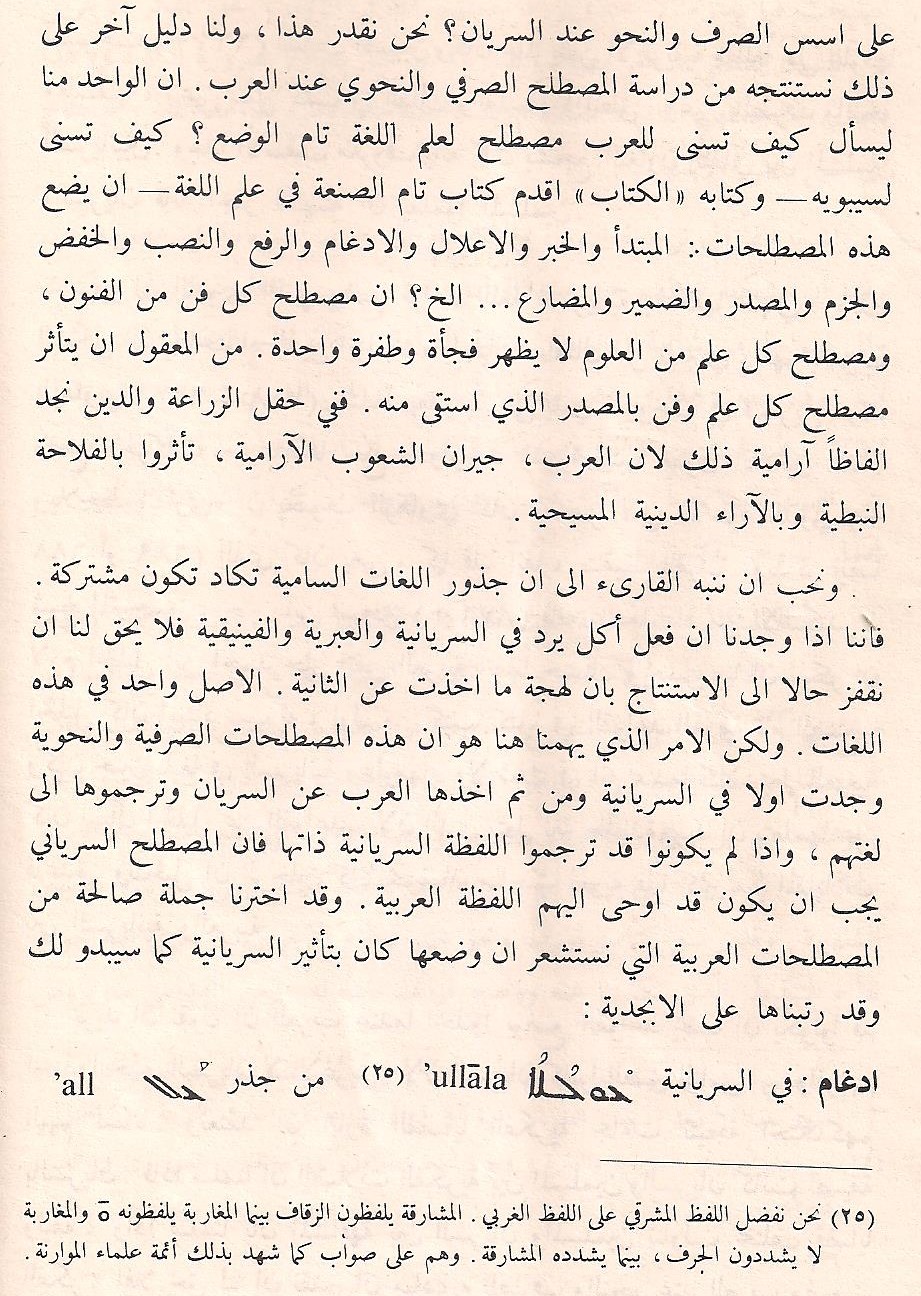 على اسس الصرف والنحو عند السريان؟ نحن نقدر هذا ، ولنا دليل آخر على
ذلك نستنتجه من دراسة المصطلح الصرفي والنحوي عند العرب . ان الواحد منا
ليسأل كيف تسنى للعرب مصطلح لعلم اللغة تام الوضع ؟ كيف تسنى
لسيبويه — وكتابه «الكتاب» اقدم كتاب تام الصنعة في علم اللغة — ان يضع
هذه المصطلحات : المبتدأ والخبر والاعلال والادغام والرفع والنصب والخفض
والجزم والمصدر والضمير والمضارع ... الخ ؟ ان مصطلح كل فن من الفنون ،
ومصطلح كل علم من العلوم لا يظهر فجأة وطفرة واحدة . من المعقول ان يتأثر
مصطلح كل علم وفن بالمصدر الذي استقى منه . ففي حقل الزراعة والدين نجد
الفاظاً آرامية ذلك لان العرب ، جيران الشعوب الآرامية ، تأثروا بالفلاحة
النبطية وبالآراء الدينية المسيحية .
ونحب ان ننبه القارىء الى ان جذور اللغات السامية تكاد تكون مشتركة .
فاننا اذا وجدنا ان فعل أكل يرد في السريانية والعبرية والفينيقية فلا يحق لنا ان
نقفز حالا الى الاستنتاج بان لهجة ما اخذت عن الثانية . الاصل واحد في هذه
اللغات . ولكن الامر الذي يهمنا هنا هو ان هذه المصطلحات الصرفية والنحوية
وجدت اولا في السريانية ومن ثم اخذها العرب عن السريان وترجموها الى
لغتهم ، واذا لم يكونوا قد ترجموا اللفظة السريانية ذاتها فان المصطلح السرياني
يجب ان يكون قد اوحى اليهم اللفظة العربية . وقد اخترنا جملة صالحة من
المصطلحات العربية التي نستشعر ان وضعها كان بتأثير السريانية كما سيبدو لك
وقد رتبناها على الابجدية :
ادغام : في السريانية 'ullāla (٢٥) من جذر 'all
(٢٥) نحن نفضل اللفظ المشرقي على اللفظ الغربي . المشارقة يلفظون الزقاف بينما المغاربة يلفظونه ō والمغاربة
لا يشددون الحرف ، بينما يشدده المشارقة . وهم على صواب كما شهد بذلك أئمة علماء الموارنة .